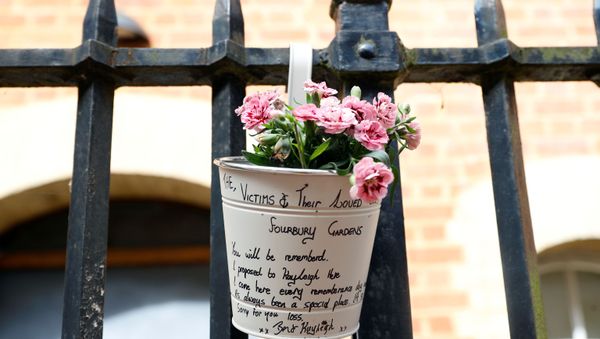 Life, Victims & Their Loved
Fourbury Gardens
You will be rememberd.
I proposed to Kayleigh Here
I come here every rememberence
it's always been a special place.
Sorry for you loss.
xx Ben & Kayleigh